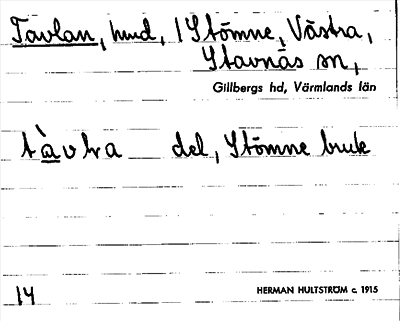 Tavlan, hmd, /Stömne, Västra,
Stavnäs sn,
Gillbergs hd, Värmlands län
tàvḷa del, Stömne bruk
14 HERMAN HULTSTRÖM c. 1915